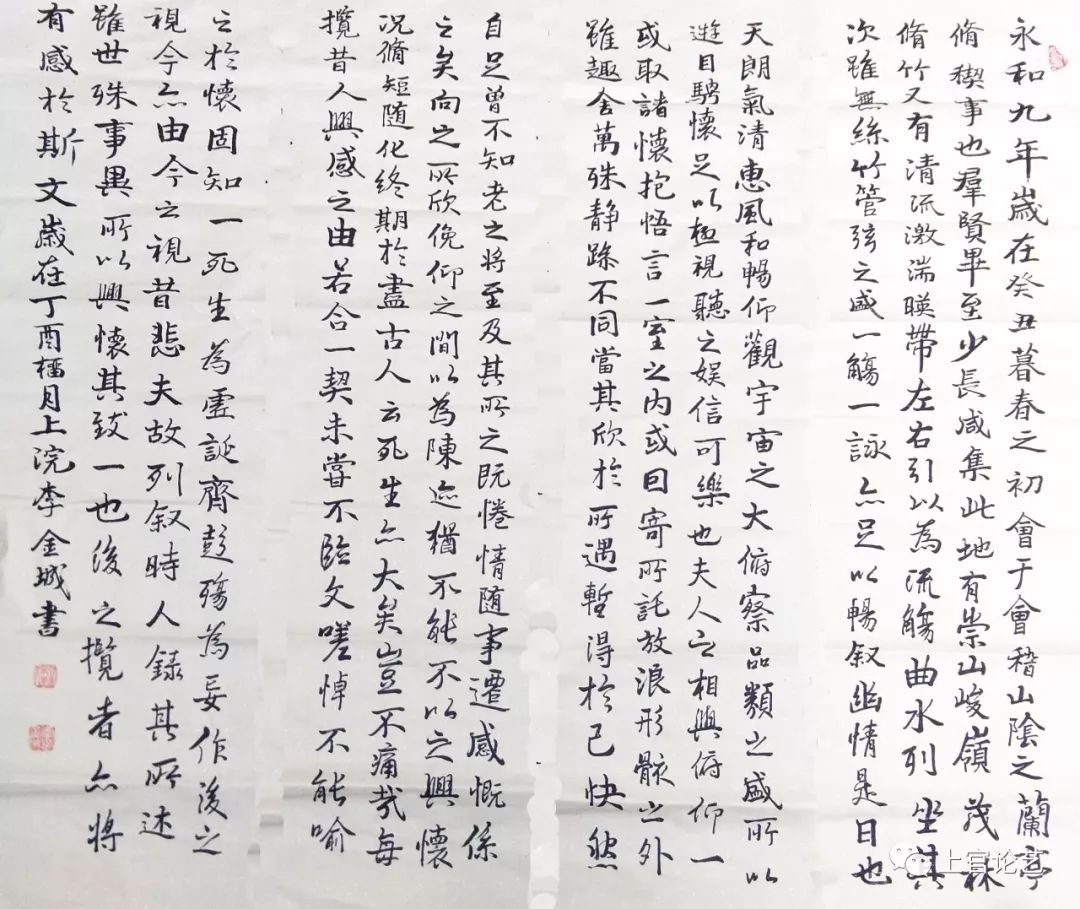 永和九年歲在癸丑暮春之初會于會稽山陰之蘭亭
脩稧事也羣賢畢至少長咸集此地有崇山峻嶺茂林
脩竹又有清流激湍暎帶左右引以為流觴曲水列坐其
次雖無絲竹管弦之盛一觴一詠亦足以暢叙幽情是日也
天朗氣清惠風和暢仰觀宇宙之大俯察品類之盛所以
遊目騁懷足以極視聽之娛信可樂也夫人之相與俯仰一
或取諸懷抱悟言一室之内或因寄所託放浪形骸之外
雖趣舍萬殊静躁不同當其欣於所遇暫得於己快然
自足曾不知老之將至及其所之既惓情随事遷感慨係
之矣向之所欣俛仰之間以為陳迹猶不能不以之興懷
况脩短随化終期於盡古人云死生亦大矣豈不痛哉每
攬昔人興感之由若合一契未嘗不臨文嗟悼不能喻
之於懷固知一死生為虛誕齊彭殤為妄作後之
視今亦由今之視昔悲夫故列叙時人録其所述
雖世殊事異所以興懷其致一也後之攬者亦將
有感於斯文歲在丁酉榴月上浣李金城書
上官论艺